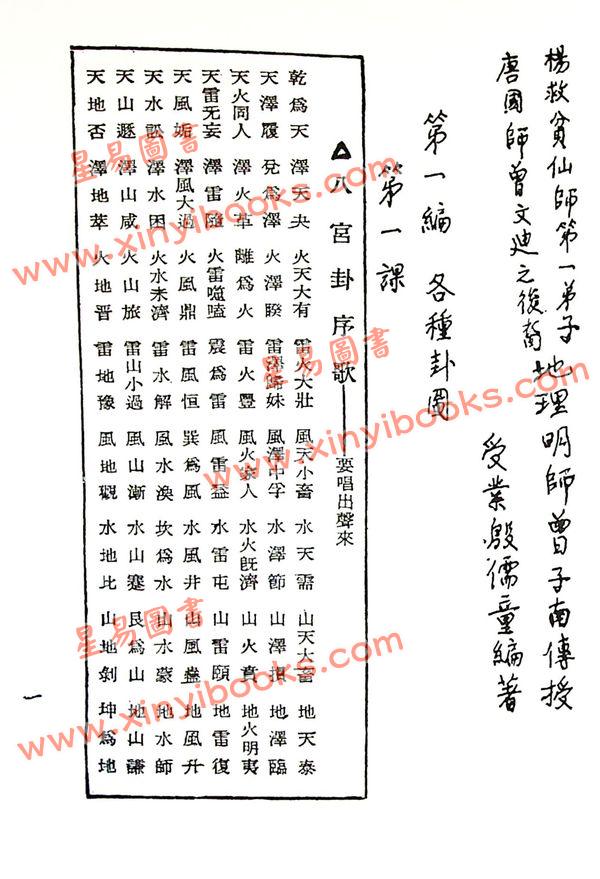 楊救貧仙師第一弟子地理明師曾子南傳授
唐國師曾文迪之後裔 受業殷儒童編著
第一編 各種卦圖
第一課
△八宮卦序歌——要唱出聲來
乾爲天 澤天夬 火天大有 雷火大壯 風天小畜 水天需 山天大畜 地天泰
天澤履 兌爲澤 火澤睽 雷澤歸妹 風澤中孚 水澤節 山澤損 地澤臨
天火同人 澤火革 離爲火 雷火豐 風火家人 水火既濟 山火賁 地火明夷
天雷无妄 澤雷隨 火雷噬嗑 震爲雷 風雷益 水雷屯 山雷頤 地雷復
天風姤 澤風大過 火風鼎 雷風恒 巽爲風 水風井 山風蠱 地風升
天水訟 澤水困 火水未濟 雷水解 風水渙 坎爲水 山水蒙 地水師
天山遯 澤山咸 火山旅 雷山小過 風山漸 水山蹇 艮爲山 地山謙
天地否 澤地萃 火地晉 雷地豫 風地觀 水地比 山地剝 坤爲地
一
星易圖書
www.xinyibooks.com
星易圖書
www.xinyibooks.com
星易圖書
www.xinyibooks.com